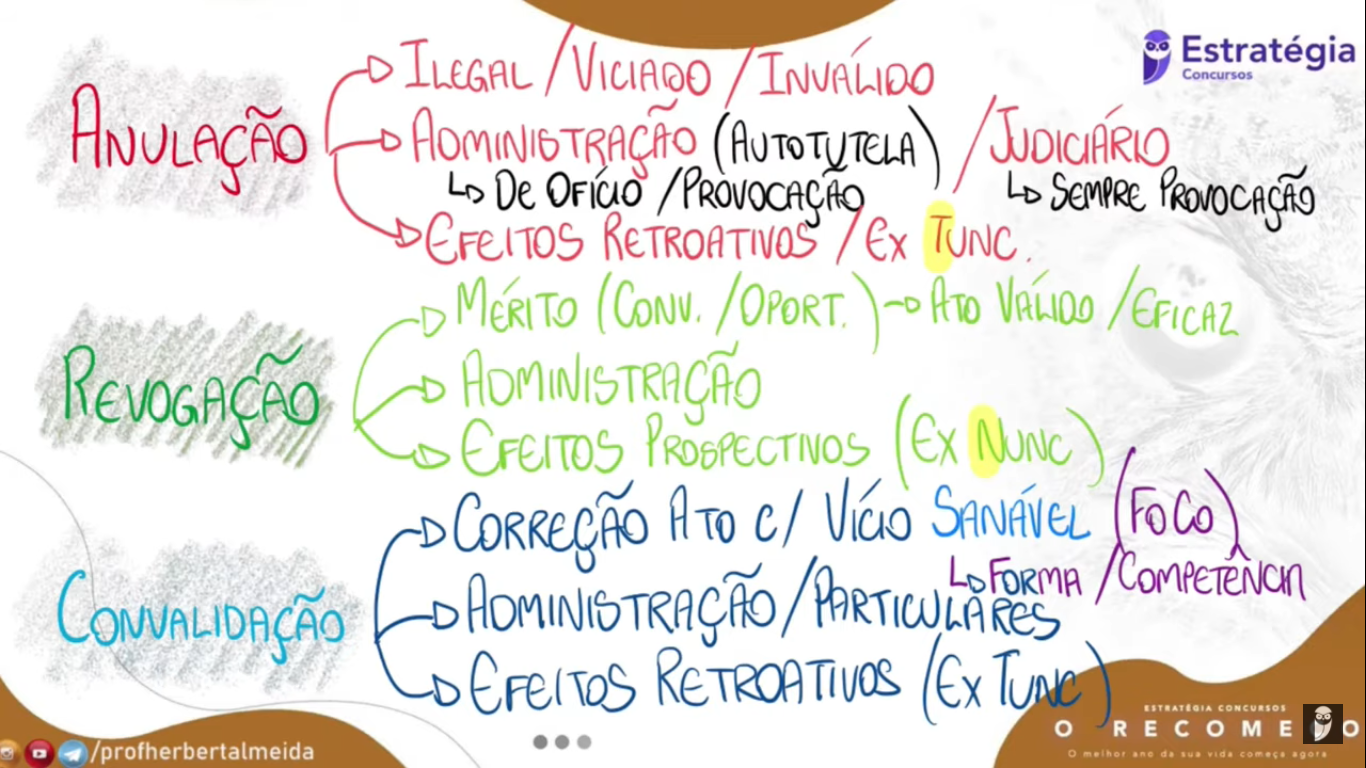 Estratégia
Concursos
ANULAÇÃO
ILEGAL / VICIADO / INVÁLIDO
ADMINISTRAÇÃO (AUTOTUTELA) / JUDICIÁRIO
↳ DE OFÍCIO / PROVOCAÇÃO ↳ SEMPRE PROVOCAÇÃO
EFEITOS RETROATIVOS / EX TUNC.
REVOGAÇÃO
MÉRITO (CONV. / OPORT.) → ATO VÁLIDO / EFICAZ
ADMINISTRAÇÃO
EFEITOS PROSPECTIVOS (EX NUNC)
CONVALIDAÇÃO
CORREÇÃO ATO C/ VÍCIO SANÁVEL (FOCO)
↳ FORMA / COMPETÊNCIA
ADMINISTRAÇÃO / PARTICULARES
EFEITOS RETROATIVOS (EX TUNC)
/profherbertalmeida
ESTRATÉGIA CONCURSOS
O RECOMEÇO
O melhor ano da sua vida começa agora